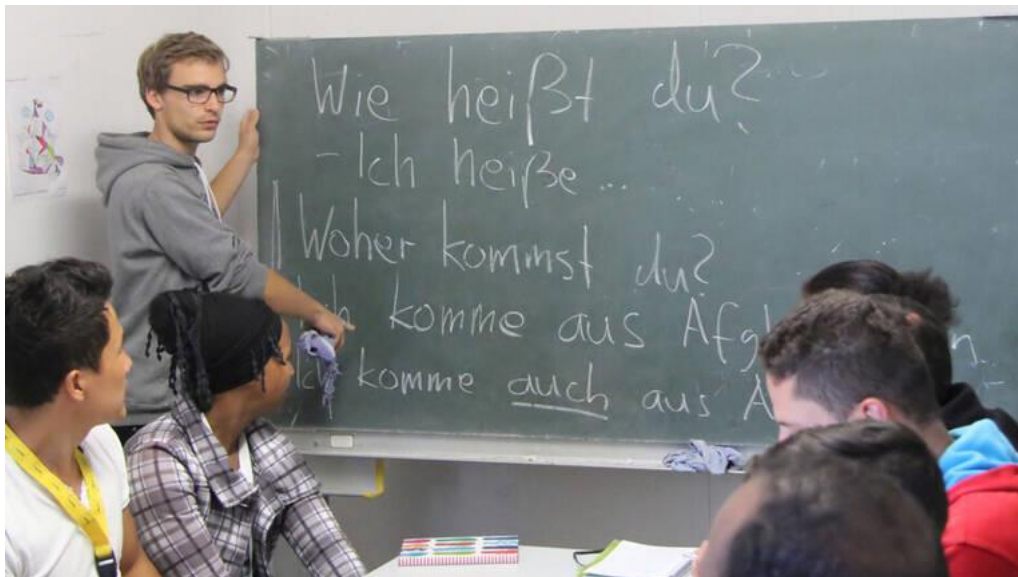 Wie heißt du?
- Ich heiße...
Woher kommst du?
komme aus
komme auch aus